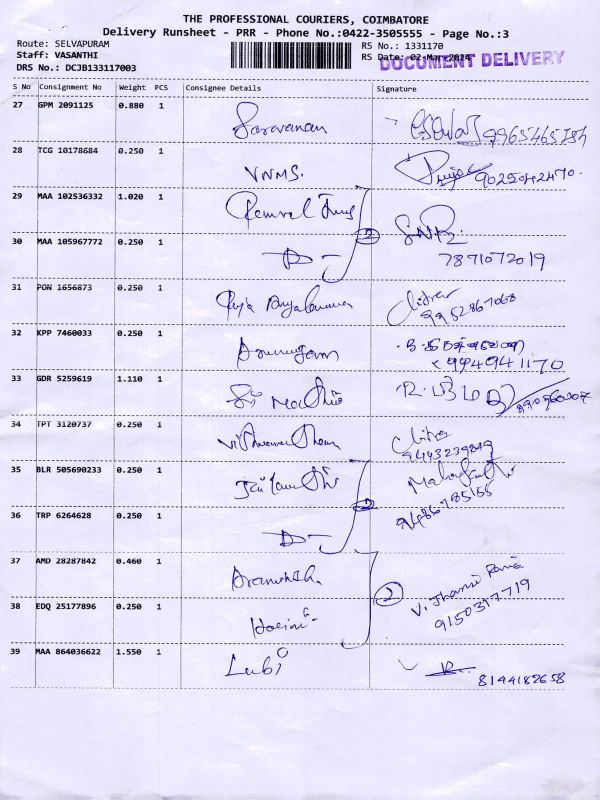 THE PROFESSIONAL COURIERS, COIMBATORE
Delivery Runsheet - PRR - Phone No.:0422-3505555 - Page No.:3
Route: SELVAPURAM
RS No.: 1331170
Staff: VASANTHI
RS Date: 02-Mar-2024
DOCUMENT DELIVERY
DRS No.: DCJB133117003
S No Consignment No Weight PCS Consignee Details Signature
27 GPM 2091125 0.880 1
Saravanan 9965465784
28 TCG 10178684 0.250 1
VNMS. Priya 9025042470.
29 MAA 102536332 1.020 1
2
30 MAA 105967772 0.250 1
D 7871072019
31 PON 1656873 0.250 1
Puja Chitra 9952867068
32 KPP 7460033 0.250 1
Arumugam 9940941170
33 GDR 5259619 1.110 1
Sri
34 TPT 3120737 0.250 1
Chitra
9443239849
35 BLR 505690233 0.250 1
9486785155
2
36 TRP 6264628 0.250 1
D
37 AMD 28287842 0.460 1
V. Jhansi Rani
9150317719
2
38 EDQ 25177896 0.250 1
39 MAA 864036622 1.550 1
Lubi 8144182658